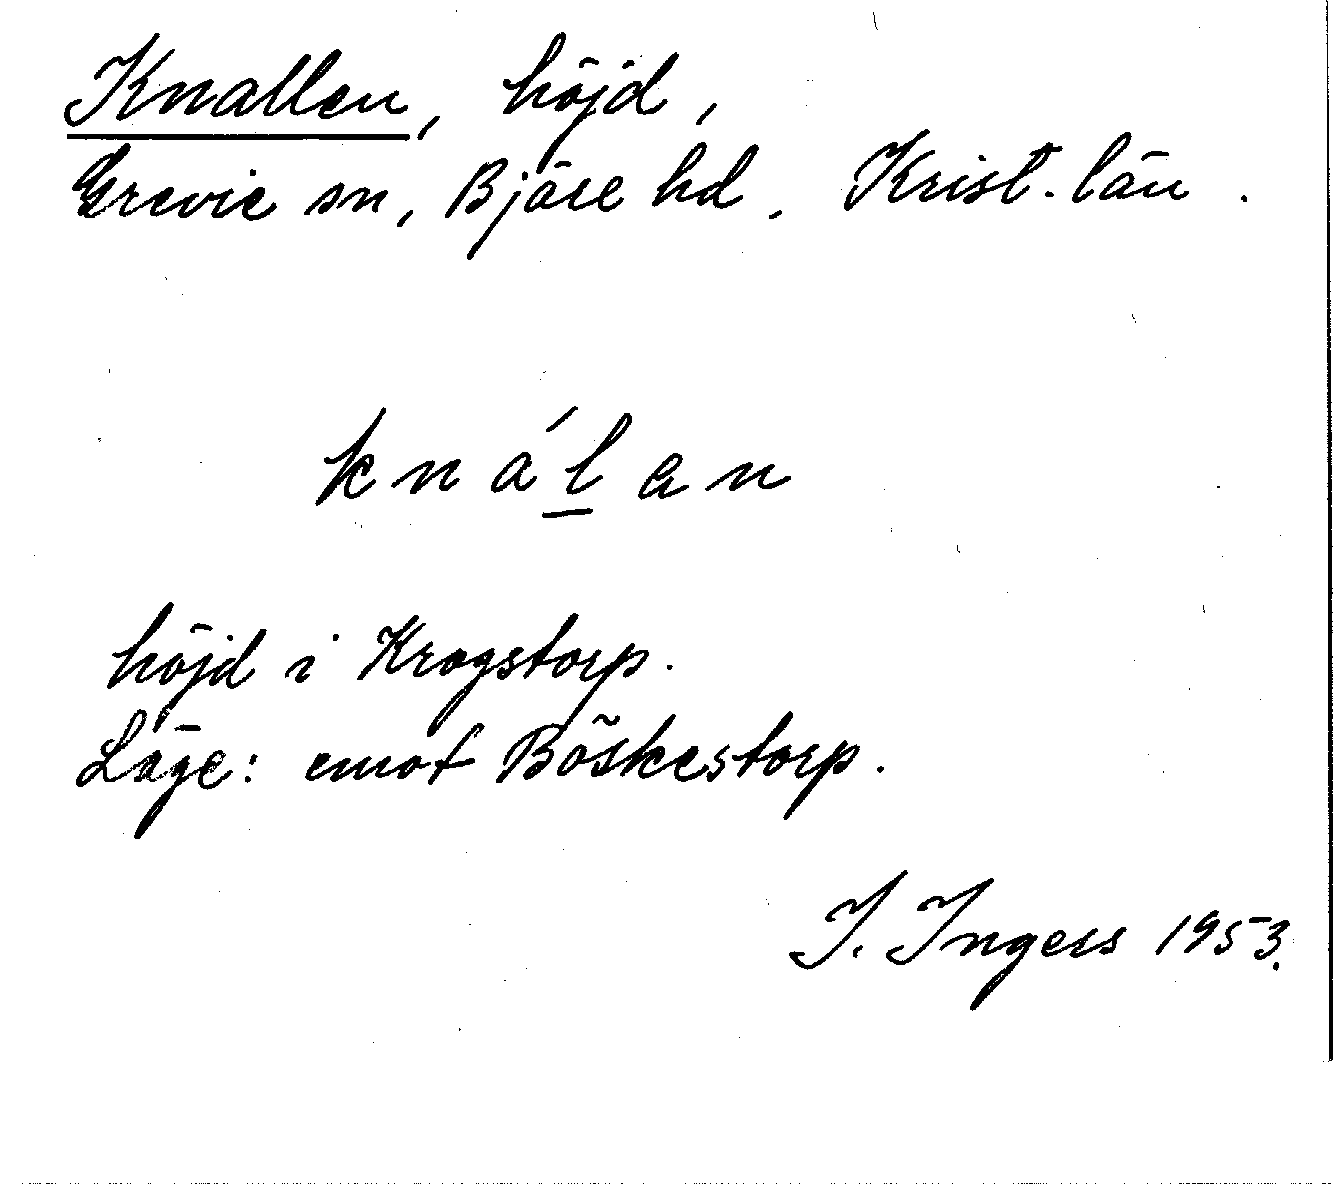 Knallen, höjd,
Grevie sn, Bjäre hd. Krist. län.
knálan
höjd i Krogstorp.
Läge: emot Böskestorp.
I. Ingers 1953.